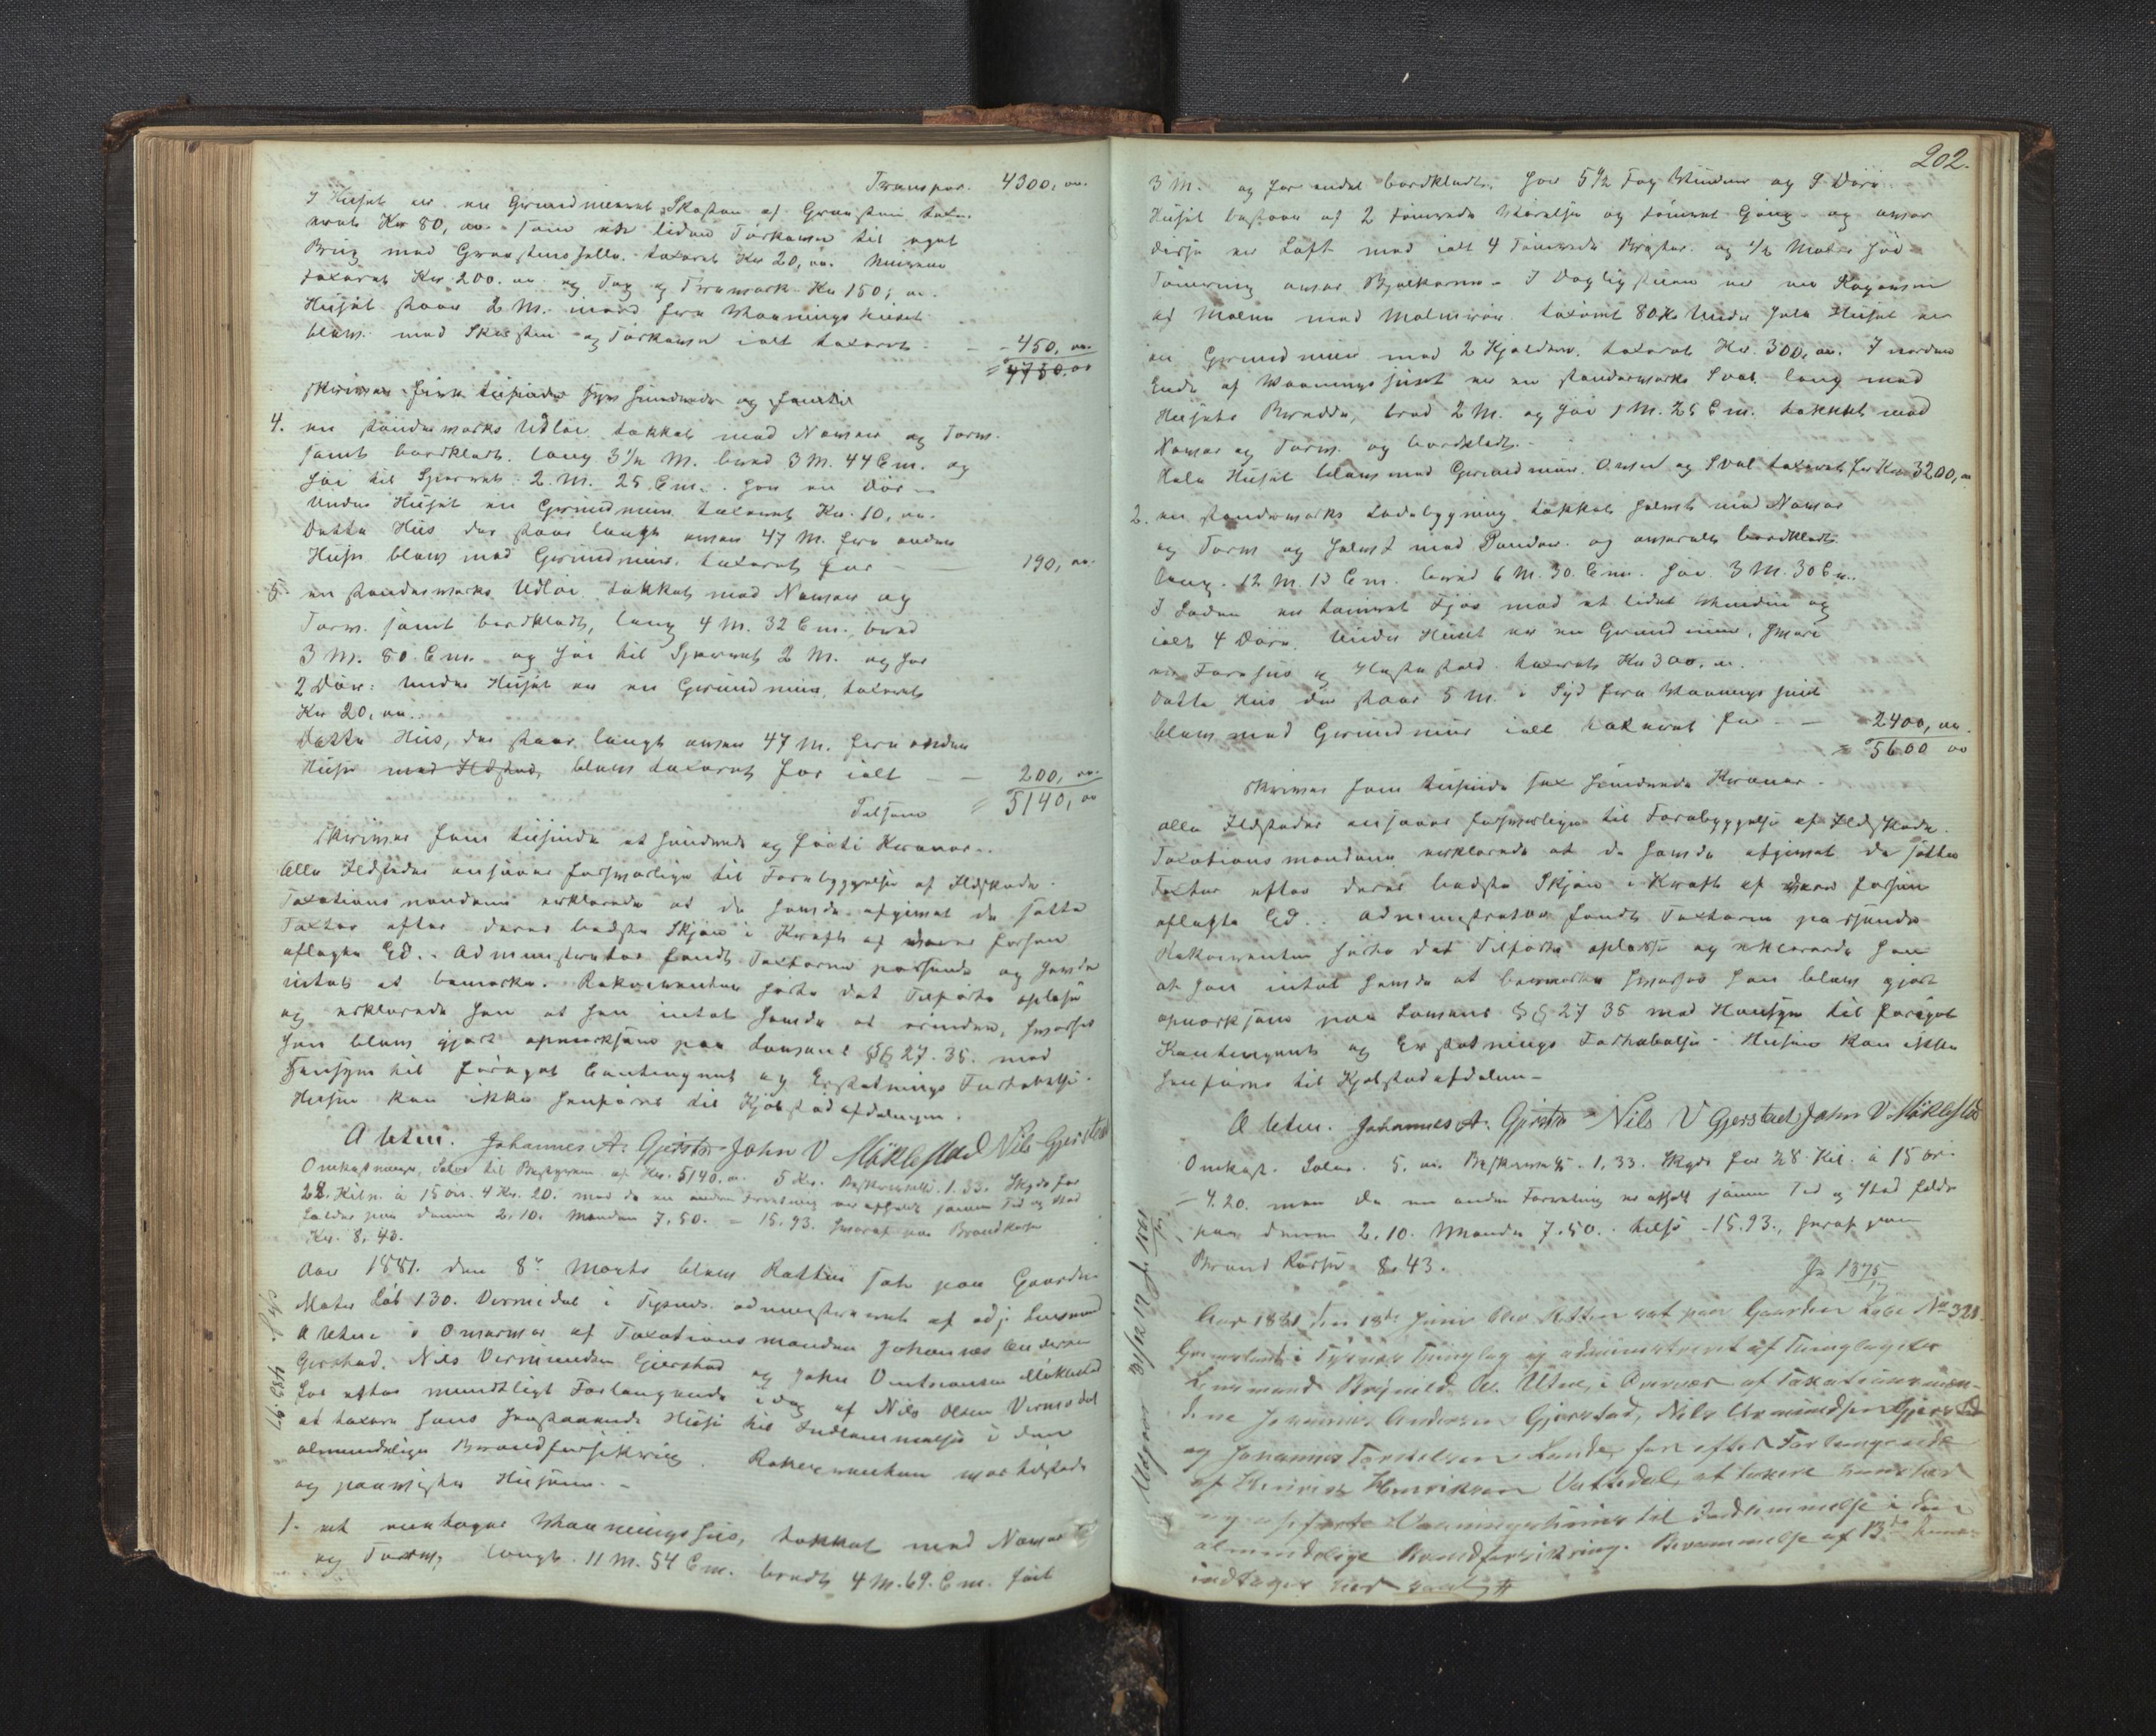 Transpor. 4300, oo.
I Huset er en Grundmuret Skosten af Graasten taxe-
rert Kr 80, oo. samt en liden Tørkeovn til eget
Brug med Graastenshelle. taxeret Kr 20, oo. Murene
taxeret Kr. 200. oo og Tag og Træværk Kr 150, oo.
Huset staar 2 M. nord fra Vaanings huset
blev med Skorsten og Tørkeovn ialt taxeret - - 450, oo.
= 4750. oo
skriver fire tusinde syv hundrede og femti
4. en standerværks Udløe takket med Næver og Torv.
samt bordklædt. lang 3½ M. bred 3 M. 44 Cm. og
høi til Sperret 2. M. 25 Cm. har en Dør -
Under Huset en Grundmur taxeret Kr. 10, oo.
Dette Hus der staar langt over 47 M. fra andre
Huse blev med Grundmur taxeret for - - 190, oo.
5. en standerværks Udløe takket med Næver og
Torv. samt bordklædt, lang 4 M. 32 Cm., bred
3 M. 80 Cm. og høi til Sperret 2 M. og har
2 Døre: Under Huset er en Grundmur, taxeret
Kr 20, oo.
Dette Hus, der staar langt over 47 M. fra andre
Huse med Ildsted, blev taxeret for ialt - - 200, oo.
Tilsam = 5140, oo
skriver fem tusinde et hundrede og førti Kroner.
Alle Ildsteder ansaaes forsvarlige til Forebyggelse af Ildskade.
Taxationsmændene erklærede at de havde afgivet de satte
Taxter efter deres bedste Skjøn i Kraft af deres forhen
aflagte Ed. Administrator fandt Taxterne passende og havde
intet at bemærke. Rekvirenten hørte det Tilførte oplæse
og erklærede han at han intet havde at erindre, hvorhos
han blev gjort opmærksom paa Lovens §§ 27. 35. med
Hensyn til forøget Contingent og Erstatnings Fortabelse.
Husene kan ikke henføres til Kjøbstadafdelingen.
A Utne. Johannes A. Gjerstad John V Møklestad Nils Gjerstad
Omkostninger, Salær til Bestyreren af Kr. 5140. oo 5 Kr. Beskrivelse 1. 33. Skyds for
28. Kilm. à 15 øre. 4 Kr. 20. med da en anden Forretning var afholdt samme Tid og Sted
falder paa denne 2. 10. Mænden 7. 50. = 15. 93. hvoraf paa Brandkassen
Kr. 8, 43.
Aar 1881. den 8de Marts blev Retten sat paa Gaarden
Mater Løb 130. Vermedal i Tysnes. administreret af adj. Lensmand
A Utne i Overvær af Taxationsmænden Johannes Andersen
Gjerstad. Nils Vermundsen Gjerstad og John Villumsen Møklestad
for efter mundtligt Forlangende idag af Nils Olsen Vermedal
at taxere hans tilhørende Huse til Indlemmelse i den
almindelige Brandforsikring. Rekvirenten var tilstede
og paaviste Husene. -
1. et entages Vaaningshus, takket med Næver
og Torv, langt 11 M. 54 Cm. bredt 4 M. 69. Cm. høit
202.
3 M. og for endel bordklædt. har 5½ Fag Vinduer og 9 Døre
Huset bestaar af 2 tømrede Værelser og tømret Gang og over
disse er Loft med ialt 4 tømrede Brister og ½ Meter høi
Tømring over Bjelkerne - I Dagligstuen er en Kogeovn
af Malm med Malmrør taxeret 80 Kr Under hele Huset er
en Grundmur med 2 Kjeldere. taxeret Kr. 300, oo. I nordre
Ende af Vaaningshuset er en standerværks Sval lang med
Husets Bredde, bred 2 M. og høi 1 M. 25 Cm. takket med
Næver og Torv og bordklædt. -
Hele Huset blev med Grundmur. Ovn og Sval taxeret for Kr 3200, oo
2. en standerværks Ladebygning takket halvt med Næver
og Torv og halvt med Pander og overalt bordklædt
lang. 12 M. 13 Cm. bred 6 M. 30. Cm. høi 3 M. 30 Cm.
I Laden er tømret Fjøs med et lidet Vindue og
ialt 4 Døre. Under Huset er en Grundmur, hvori
er Faarehus og Hestestald. taxeret Kr 300, oo.
dette Hus der staar 5 M. i Syd fra Vaaningshuset
blev med Grundmur ialt taxeret for - - 2400, oo.
= 5600 oo
skriver fem tusinde sex hundrede Kroner.
alle Ildsteder ansaaes forsvarlige til Forebyggelse af Ildskade.
Taxationsmændene erklærede at de havde afgivet de satte
Taxter efter deres bedste Skjøn i Kraft af deres forhen
aflagte Ed. Administrator fandt Taxterne passende
Rekvirenten hørte det Tilførte oplæse og erklærede han
at han intet havde at bemærke hvorhos han blev gjort
opmærksom paa Lovens §§ 27 35 med Hensyn til forøget
Kontingent og Erstatnings Fortabelse. Husene kan ikke
henføres til Kjøbstadafdelin -
A Utne. Johannes A. Gjerstad Nils V Gjerstad John V Møklestad
Omkost. Salær. 5. oo Beskrivelse 1. 33. Skyds for 28. Kil. à 15 ør.
= 4. 20. men da en anden Forretning er afholdt samme Tid og Sted falder
paa denne 2. 10. Mænden 7. 50. tilsa = 15. 93., hvoraf paa
Brand Kassen 8. 43.
Aar 1881 den 18de Juni blev Retten sat paa Gaarden Løbe No 321.
i Tysnes Thinglag og administreret af Thinglagets
Lensmand Brynild A. Utne, i Overvær af Taxationsmæn-
dene Johannes Andersen Gjerstad, Nils Vermundsen Gjerstad
og Johannes Torkelsen Lunde, for efter Forlangende
af Henrik Henriksen Vattedal, at taxere hans her
opførte Vaaningshuus til Indlemmelse i den
almindelige Brandforsikring. Berammelse af 13de
indtages her